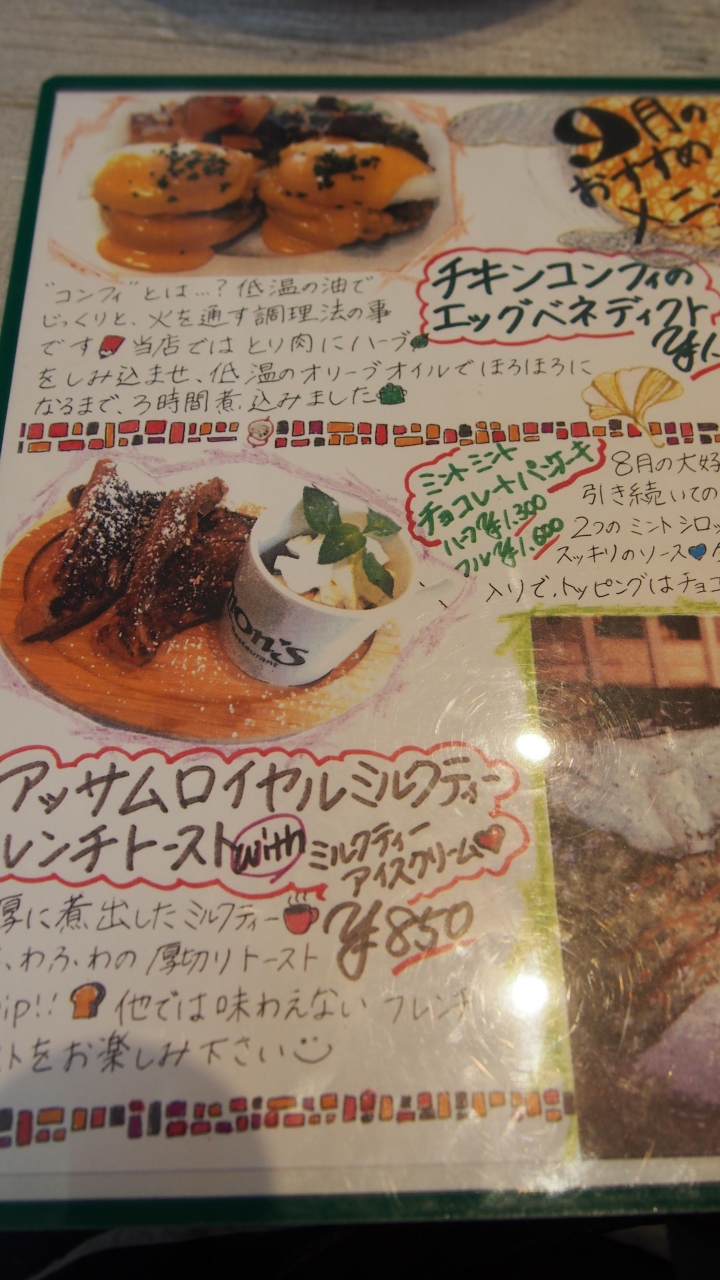 9月の
おすすめ
メニ
チキンコンフィの
エッグベネディクト
¥1
"コンフィ"とは…? 低温の油で
じっくりと、火を通す調理法の事
です 当店では とり肉にハーブ
をしみ込ませ、低温のオリーブオイルで ほろほろに
なるまで、3時間煮込みました
ミントミント
チョコレートパンケーキ
ハーフ ¥1.300
フル ¥1.600
8月の大好
引き続いての
2つの ミントシロッ
スッキリのソース
入りで、トッピングはチョコ
on's
Restaurant
アッサムロイヤルミルクティー
レンチトースト with ミルクティー
アイスクリーム
¥850
厚に煮出したミルクティー
わふわの 厚切りトースト
ip!! 他では味わえない フレンチ
ストをお楽しみ下さい